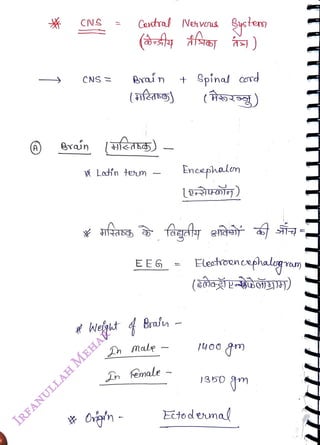 ※ CNS = Central Nervous System
(केन्द्रीय तंत्रिका तंत्र)
→ CNS = Brain + Spinal cord
(मस्तिष्क) (मेरूरज्जु)
Ⓐ Brain (मस्तिष्क) —
※ Latin term — Encephalon
(एन्सेफलॉन)
※ मस्तिष्क के विद्युतीय आवेगों की जाँच =
EEG = Electroencephalogram
(इलेक्ट्रोएन्सेफेलोग्राम)
※ Weight of Brain -
In male — 1400 gm
In Female — 1350 gm
※ Origin - Ectodermal
IRFANULLAH MEHAR